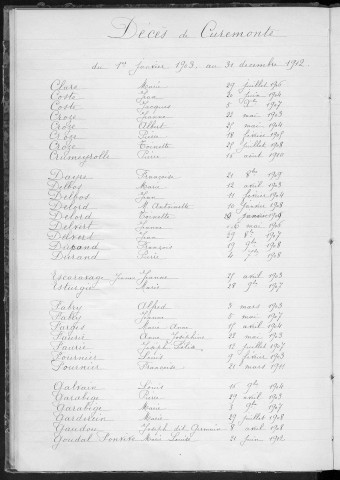 Décès de Curemonte
du 1er Janvier 1903, au 31 décembre 1912
Clare Marie 29 juillet 1906
Coste Jean 4 juin 1904
Coste Jacques 5 9bre 1907
Croze Jeanne 22 mai 1903
Croze Albert 25 mai 1904
Croze Pierre 18 février 1905
Croze Toinette 25 juillet 1908
Crumeyrolle Pierre 15 août 1910
Dayre Françoise 21 8bre 1909
Delbos Marie 12 avril 1903
Delbos Jean 11 février 1904
Delord M. Antoinette 10 janvier 1908
Delord Toinette janvier 1909
Delvert Jeanne mai 1906
Delvert Jean 29 8bre 1907
Durand François 19 9bre 1908
Durand Pierre 4 7bre 1908
Escaravage Jeanne 25 avril 1903
Esturgie Marie 18 9bre 1907
Fatry Alfred 3 mars 1903
Fatry Jeanne 5 mai 1907
Farges Marie Anne 15 avril 1904
Faurie Anne Joséphine 22 mai 1903
Faurie Joseph 12 juillet 1907
Fournier Louis 9 février 1903
Fournier Françoise 21 mars 1910
Galvain Louis 15 9bre 1904
Garabige Pierre 29 avril 1903
Garabige Marie 3 9bre 1907
Garderein Marie 29 juillet 1908
Gandou Joseph dit Germain 8 avril 1908
Goudal Marie Louise 21 juin 1912